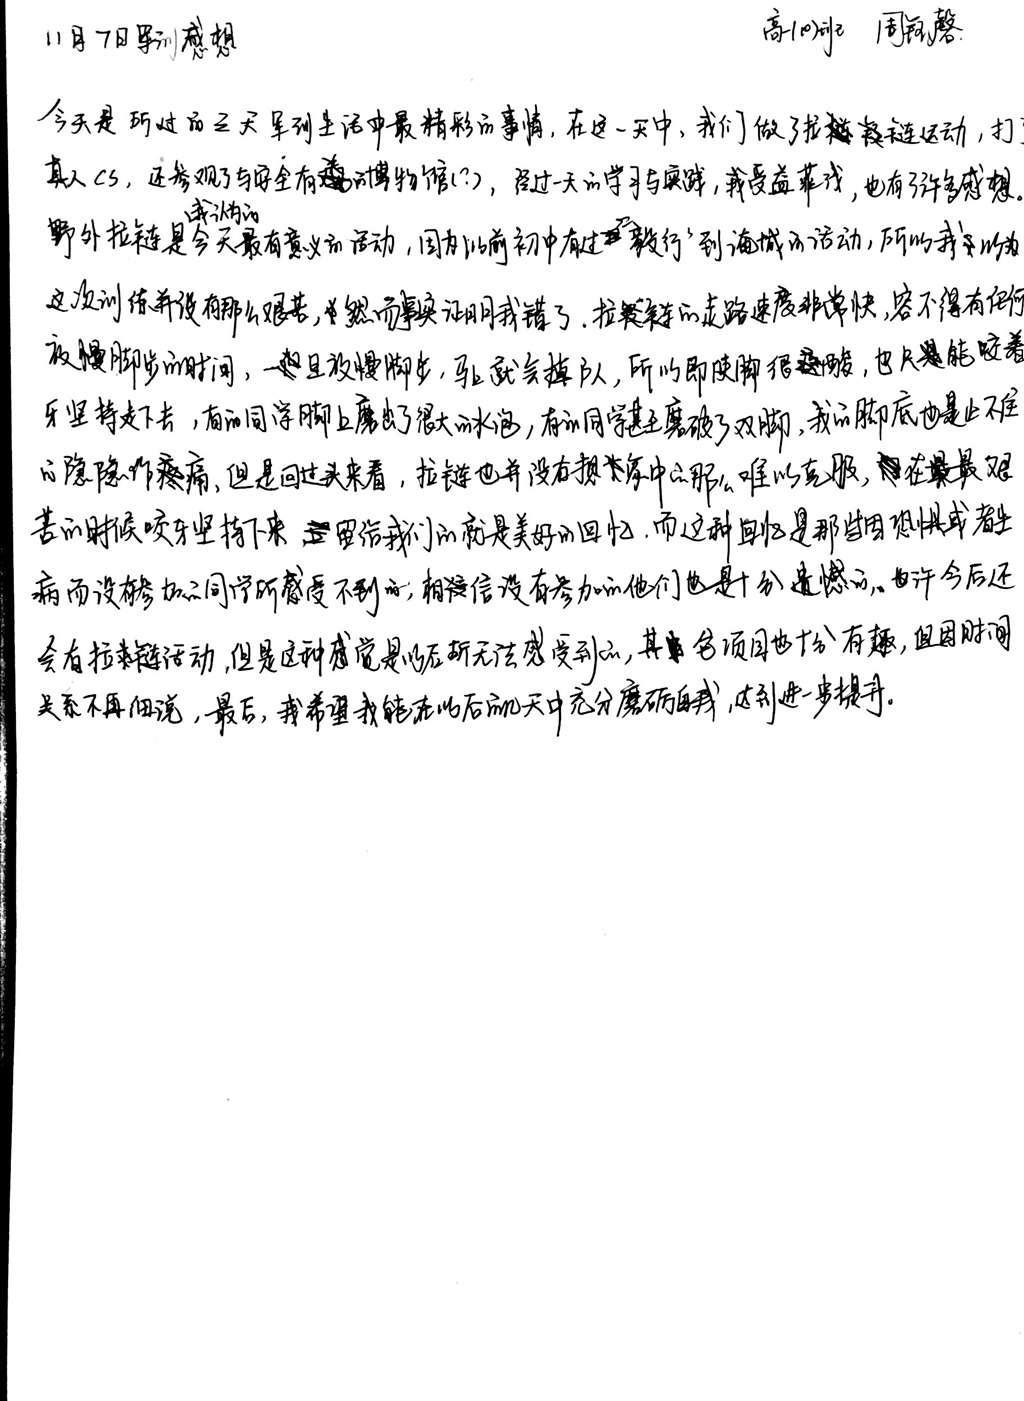 11月7日军训感想 高一(10)班 周钰馨
今天是所过的三天军训生活中最精彩的事情,在这一天中,我们做了拉练拉链运动,打了
真人CS,还参观了与安全有关的博物馆(?),经过一天的学习与实践,我受益菲浅,也有了许多感想。
野外拉链是我认为的今天最有意义的活动,因为以前初中有过“毅行”到海城的活动,所以我以为
这次训练并没有那么艰苦,然而事实证明我错了.拉链的走路速度非常快,容不得有任何
放慢脚步的时间,一旦放慢脚步,马上就会掉队,所以即使脚很酸,也只能咬着
牙坚持走下去,有的同学脚上磨出了很大的水泡,有的同学甚至磨破了双脚,我的脚底也是止不住
的隐隐作疼痛,但是回过头来看,拉链也并没有想象中的那么难以克服,在最艰
苦的时候咬牙坚持下来,留给我们的就是美好的回忆.而这种回忆是那些因恐惧或者生
病而没有参加的同学所感受不到的,相信没有参加的他们也是十分遗憾的。也许今后还
会有拉链活动,但是这种感觉是以后所无法感受到的,其余项目也十分有趣,但因时间
关系不再细说,最后,我希望我能在以后的几天中充分磨砺自我,达到进一步提升。